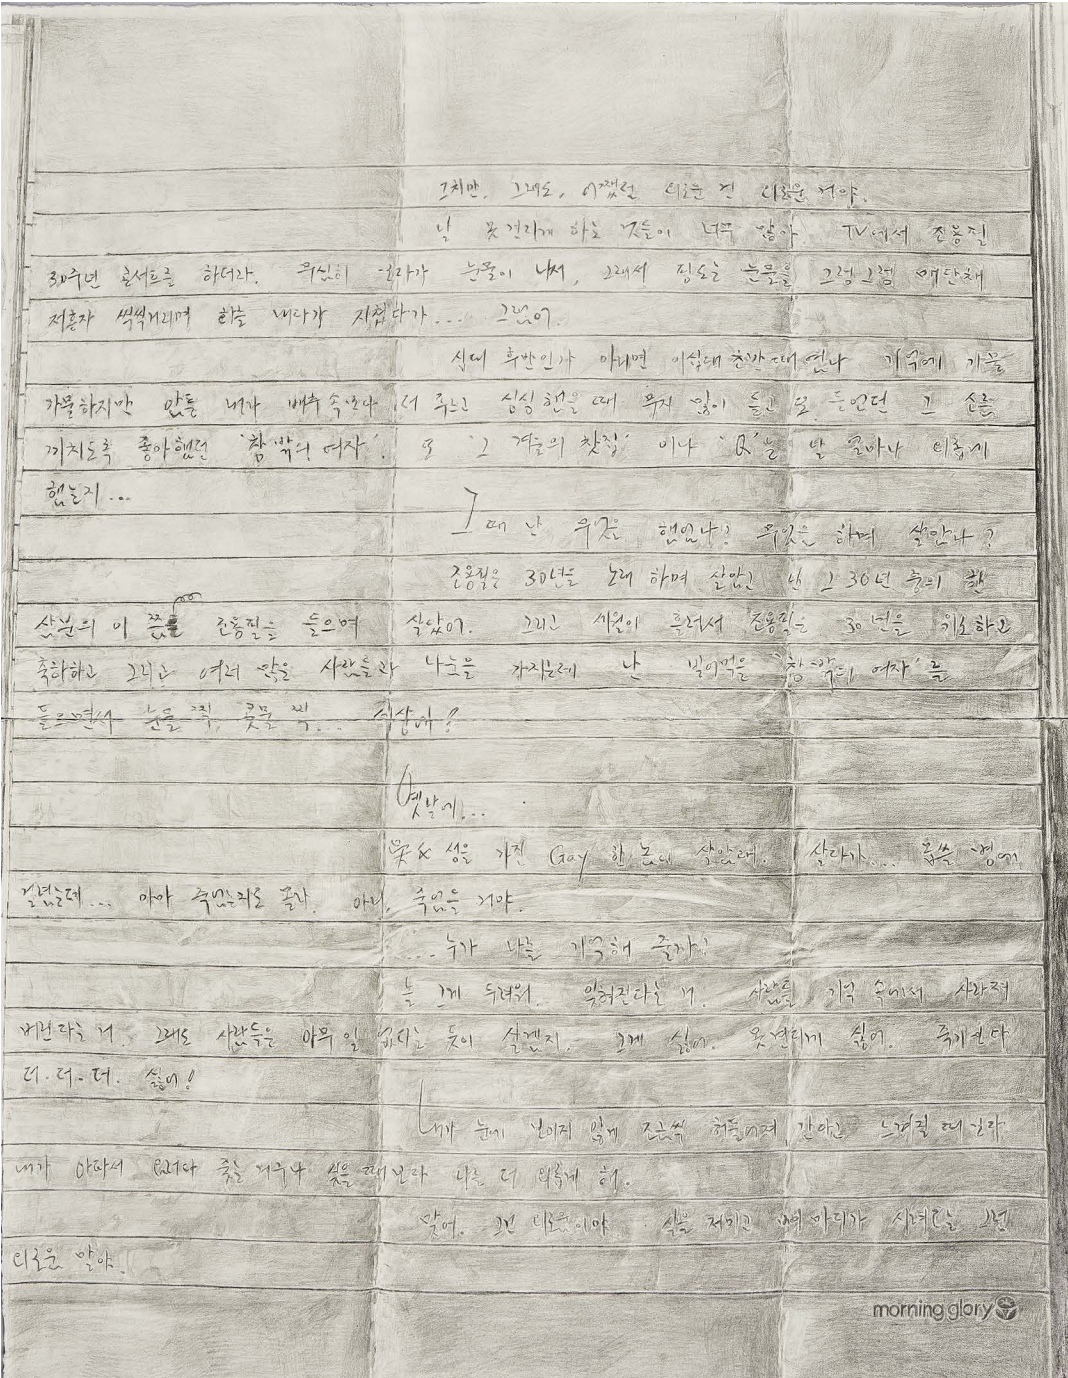 그치만, 그래도, 어쨌던 외로운 건 외로운 거야.
날 못견디게 하는 것들이 너무 많아. TV에서 조용필
30주년 콘서트를 하더라. 무심히 보다가 눈물이 나서, 그래서 핑도는 눈물을 그렁그렁 매단채
저혼자 씩씩거리며 화를 내다가 지쳤다가.... 그랬어.
십대 후반인가 아니면 이십대 초반때였나 기억에 가물
가물하지만 암튼 내가 배추속보다 더 푸르고 싱싱했을 때 무지 많이 듣고 또 들었던 그 소름
끼치도록 좋아했던 '창밖의 여자'. 또 '그 겨울의 찻집' 이나 'Q'는 날 얼마나 외롭게
했는지...
그때 난 무엇을 했었나? 무엇을 하며 살았나?
조용필은 30년을 노래하며 살았고 난 그 30년 중의 한
삼분의 이 쯤을 조용필을 들으며 살았어. 그리고 세월이 흘러서 조용필은 30년을 위로하고
축하하고 그리고 여러 많은 사람들과 나눔을 가지는데 난 빌어먹을 '창밖의 여자'를
들으면서 눈물 찍, 콧물 찍... 식상해?
옛날에...
吳 성을 가진 Gay 한 놈이 살았대. 살다가.... 몹쓸 병에
걸렸는데... 아마 죽었는지도 몰라. 아니, 죽었을 거야.
....누가 나를 기억해 줄까?
늘 그게 두려워. 잊혀진다는 거. 사람들 기억 속에서 사라져
버린다는 거. 그래도 사람들은 아무 일 없다는 듯이 살겠지. 그게 싫어. 못견디게 싫어. 죽기보다
더.더.더. 싫어!
내가 눈에 보이지 않게 조금씩 허물어져 간다고 느껴질 때 보다
내가 아파서 죽는 거구나 싶을 때보다 나를 더 외롭게 해.
맞어. 그건 외로움이야. 살을 저미고 뼈 마디가 시려오는 그런
외로운 말야.
morning glory